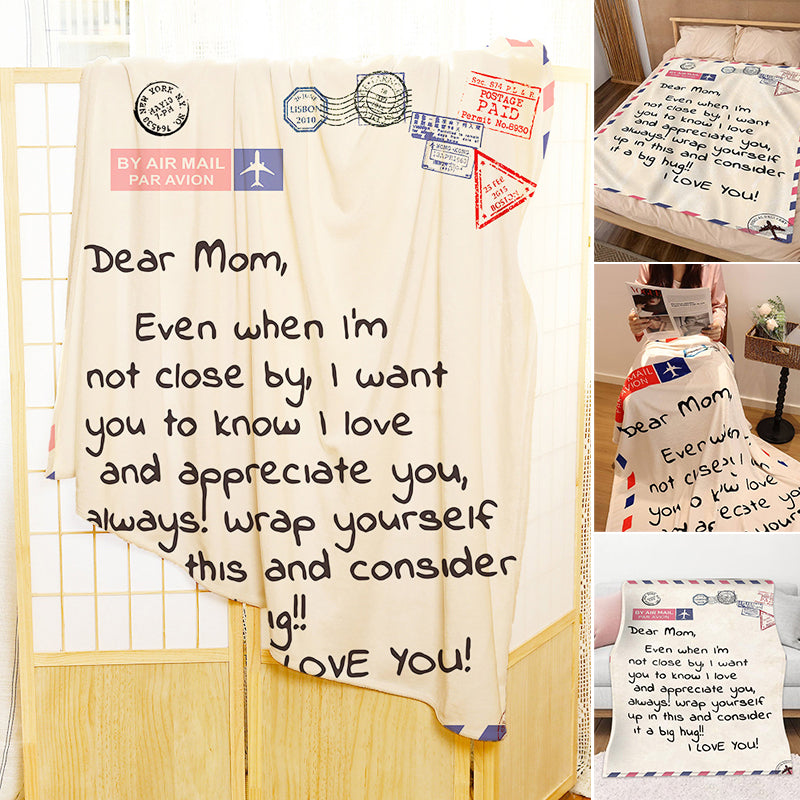 NEW YORK N.Y.
MAY 13
7-PM
LISBON
2010
POSTAGE
PAID
Permit No.6930
HONG KONG
25 FEB
2015
BOSTON
BY AIR MAIL
PAR AVION
Dear Mom,
Even when I'm
not close by, I want
you to know I love
and appreciate you,
always! wrap yourself
this and consider
ig!!
LOVE YOU!
BY AIR MAIL
PAR AVION
Dear Mom,
Even when I'm
not close by, I want
you to know I love
and appreciate you,
always! wrap yourself
up in this and consider
it a big hug!!
I LOVE YOU!
MAIL
AVION
Dear Mom,
Even when
not close
you know love
and appreciate yo
yourse
BY AIR MAIL
PAR AVION
Dear Mom,
Even when I'm
not close by, I want
you to know I love
and appreciate you,
always! wrap yourself
up in this and consider
it a big hug!!
I LOVE YOU!